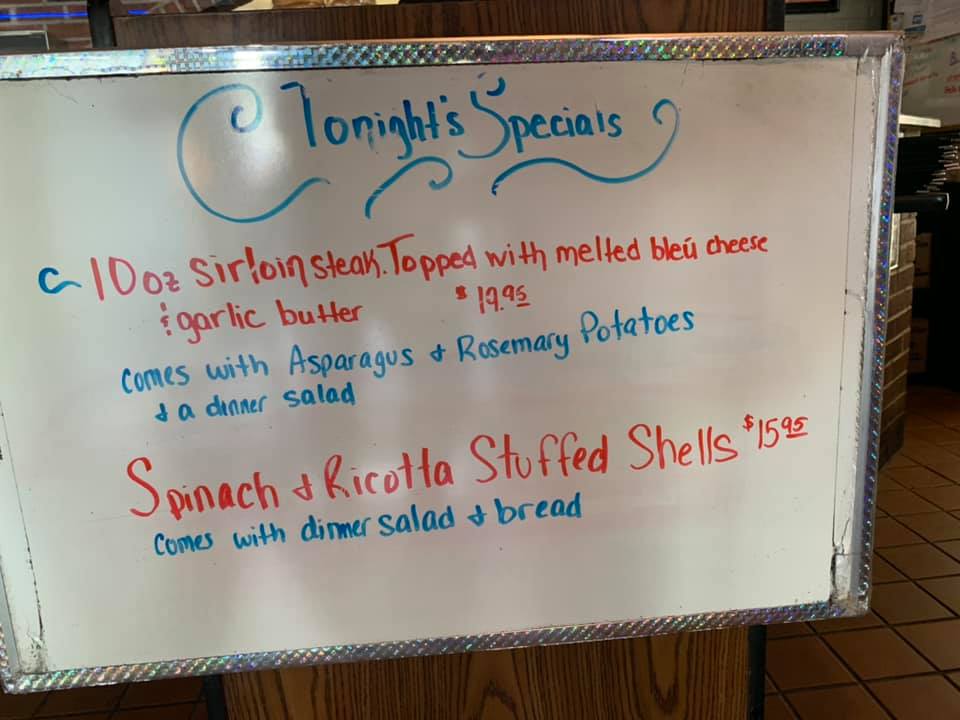 Tonight's Specials
10oz sirloin steak. Topped with melted bleú cheese
& garlic butter $19.95
comes with Asparagus & Rosemary Potatoes
& a dinner salad
Spinach & Ricotta Stuffed Shells $15.95
comes with dinner salad & bread